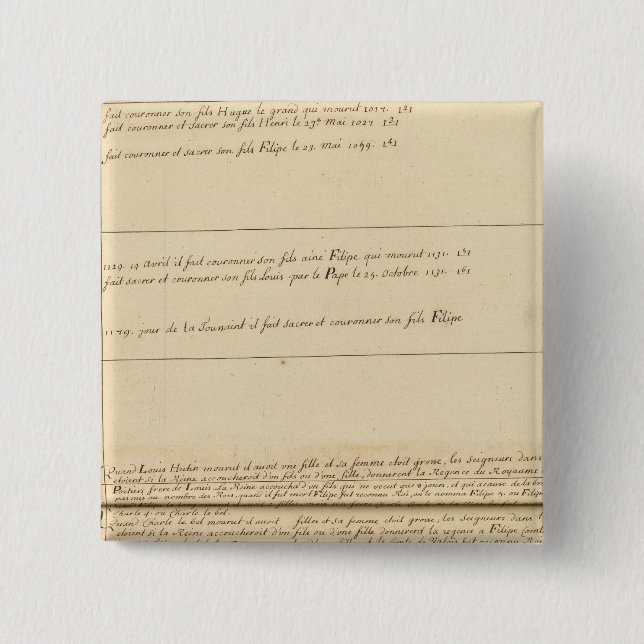 fait couronner son fils Hugue le grand qui mourut 1017.
fait couronner et sacrer son fils Henri le 23e Mai 1027
fait couronner et sacrer son fils Filipe le 23. Mai 1059.
1129. 14 Avril il fait couronner son fils ainé Filipe qui mourut 1131.
fait sacrer et couronner son fils Louis par le Pape le 25. Octobre 1131.
1179. jour de la Toussaint il fait sacrer et couronner son fils Filipe
Quand Louis Hutin mourut il avoit une fille et sa femme etoit grosse, les Seigneurs dans
etoient si la Reine accoucheroit d'un fils ou d'une fille, donnerent la Regence du Royaume
Poitiers frere de Louis la Reine accoucha d'un fils qui ne vecut que 8 jours, et qui acause de la
pas mis au nombre des Rois, quand il fut mort Filipe fut reconnu Roi, on le nomma Filipe 5. ou Filipe
Charle 4. ou Charle le bel.
Quand Charle le bel mourut il avoit filles et sa femme etoit grosse, les Seigneurs dans
etoient si la Reine accoucheroit d'un fils ou d'une fille donnerent la regence a Filipe